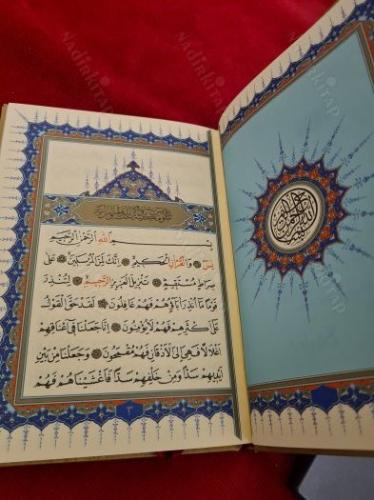 بِسْمِ اللّٰهِ الرَّحْمٰنِ الرَّحِيمِ
يٰسٓ وَالْقُرْاٰنِ الْحَكِيمِ اِنَّكَ لَمِنَ الْمُرْسَلِينَ عَلٰى
صِرَاطٍ مُسْتَقِيمٍ تَنْزِيلَ الْعَزِيزِ الرَّحِيمِ لِتُنْذِرَ
قَوْمًا مَٓا اُنْذِرَ اٰبَٓاؤُ۬هُمْ فَهُمْ غَافِلُونَ لَقَدْ حَقَّ الْقَوْلُ
عَلٰٓى اَكْثَرِهِمْ فَهُمْ لَا يُؤْمِنُونَ اِنَّا جَعَلْنَا فِٓى اَعْنَاقِهِمْ
اَغْلَالًا فَهِىَ اِلَى الْاَذْقَانِ فَهُمْ مُقْمَحُونَ وَجَعَلْنَا مِنْ بَيْنِ
اَيْدِيهِمْ سَدًّا وَمِنْ خَلْفِهِمْ سَدًّا فَاَغْشَيْنَاهُمْ فَهُمْ
٣
NADİRKİTAP